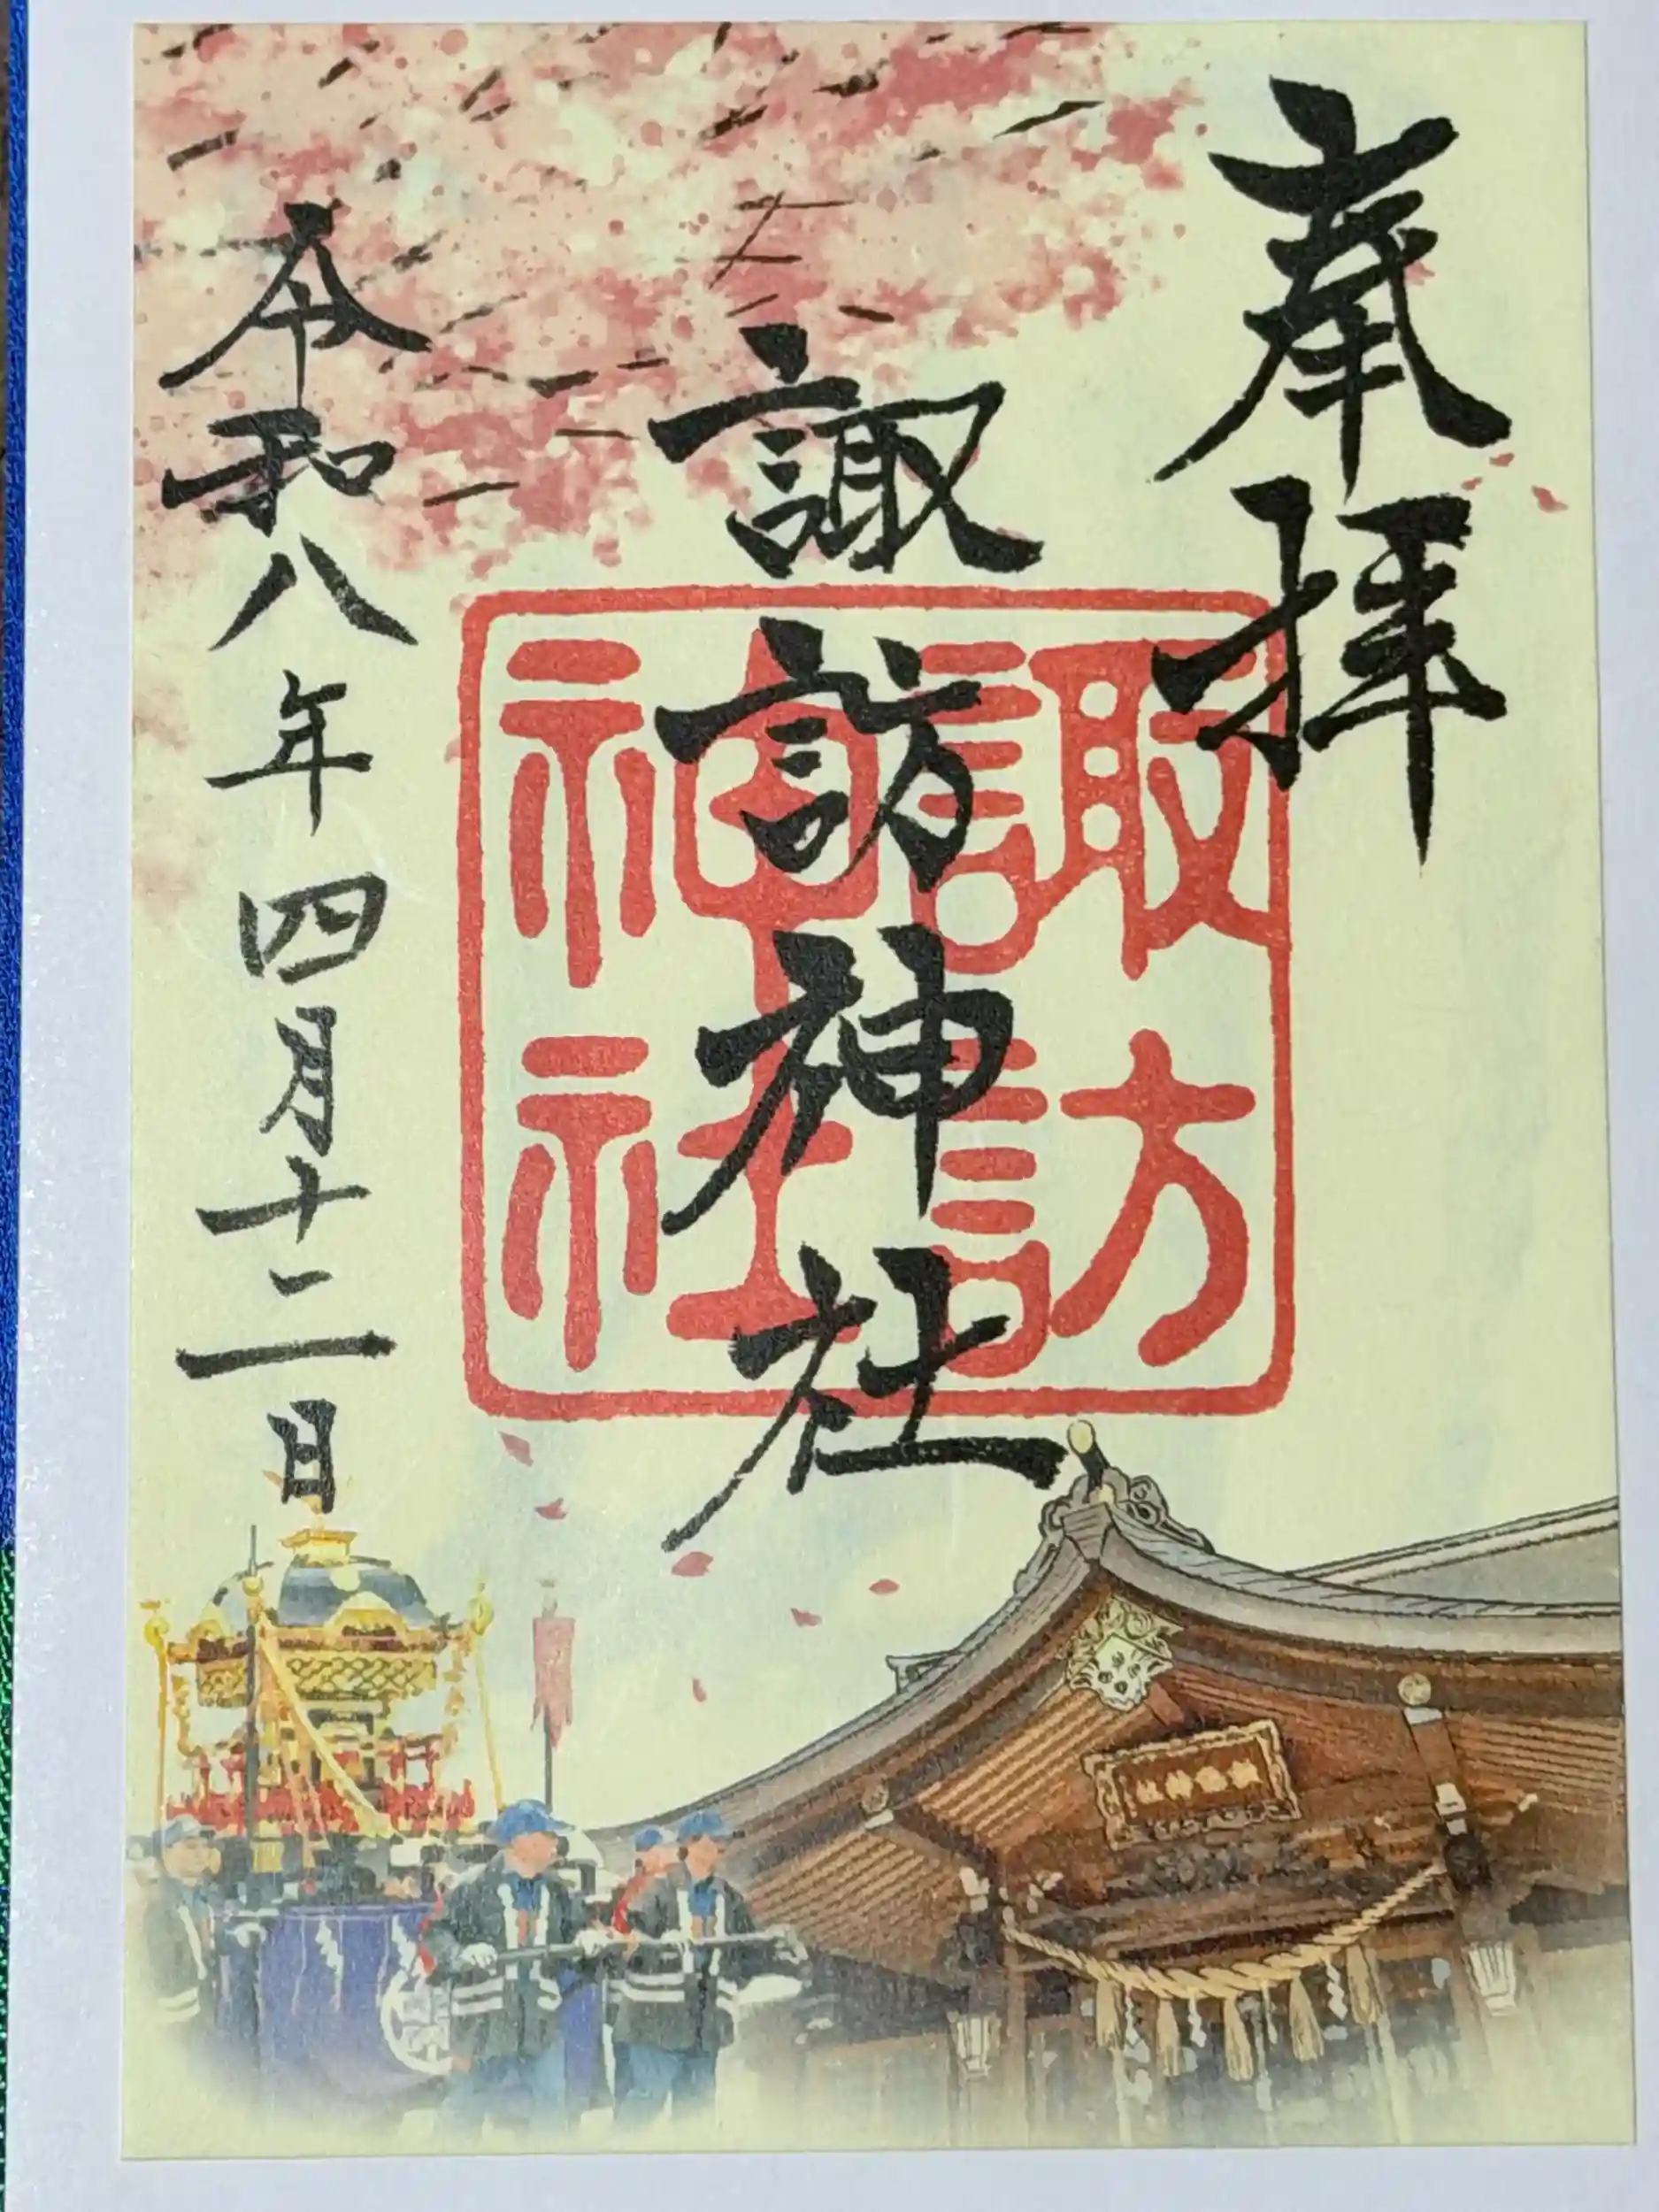 奉拝
諏訪神社
令和八年四月十二日
諏訪
神社